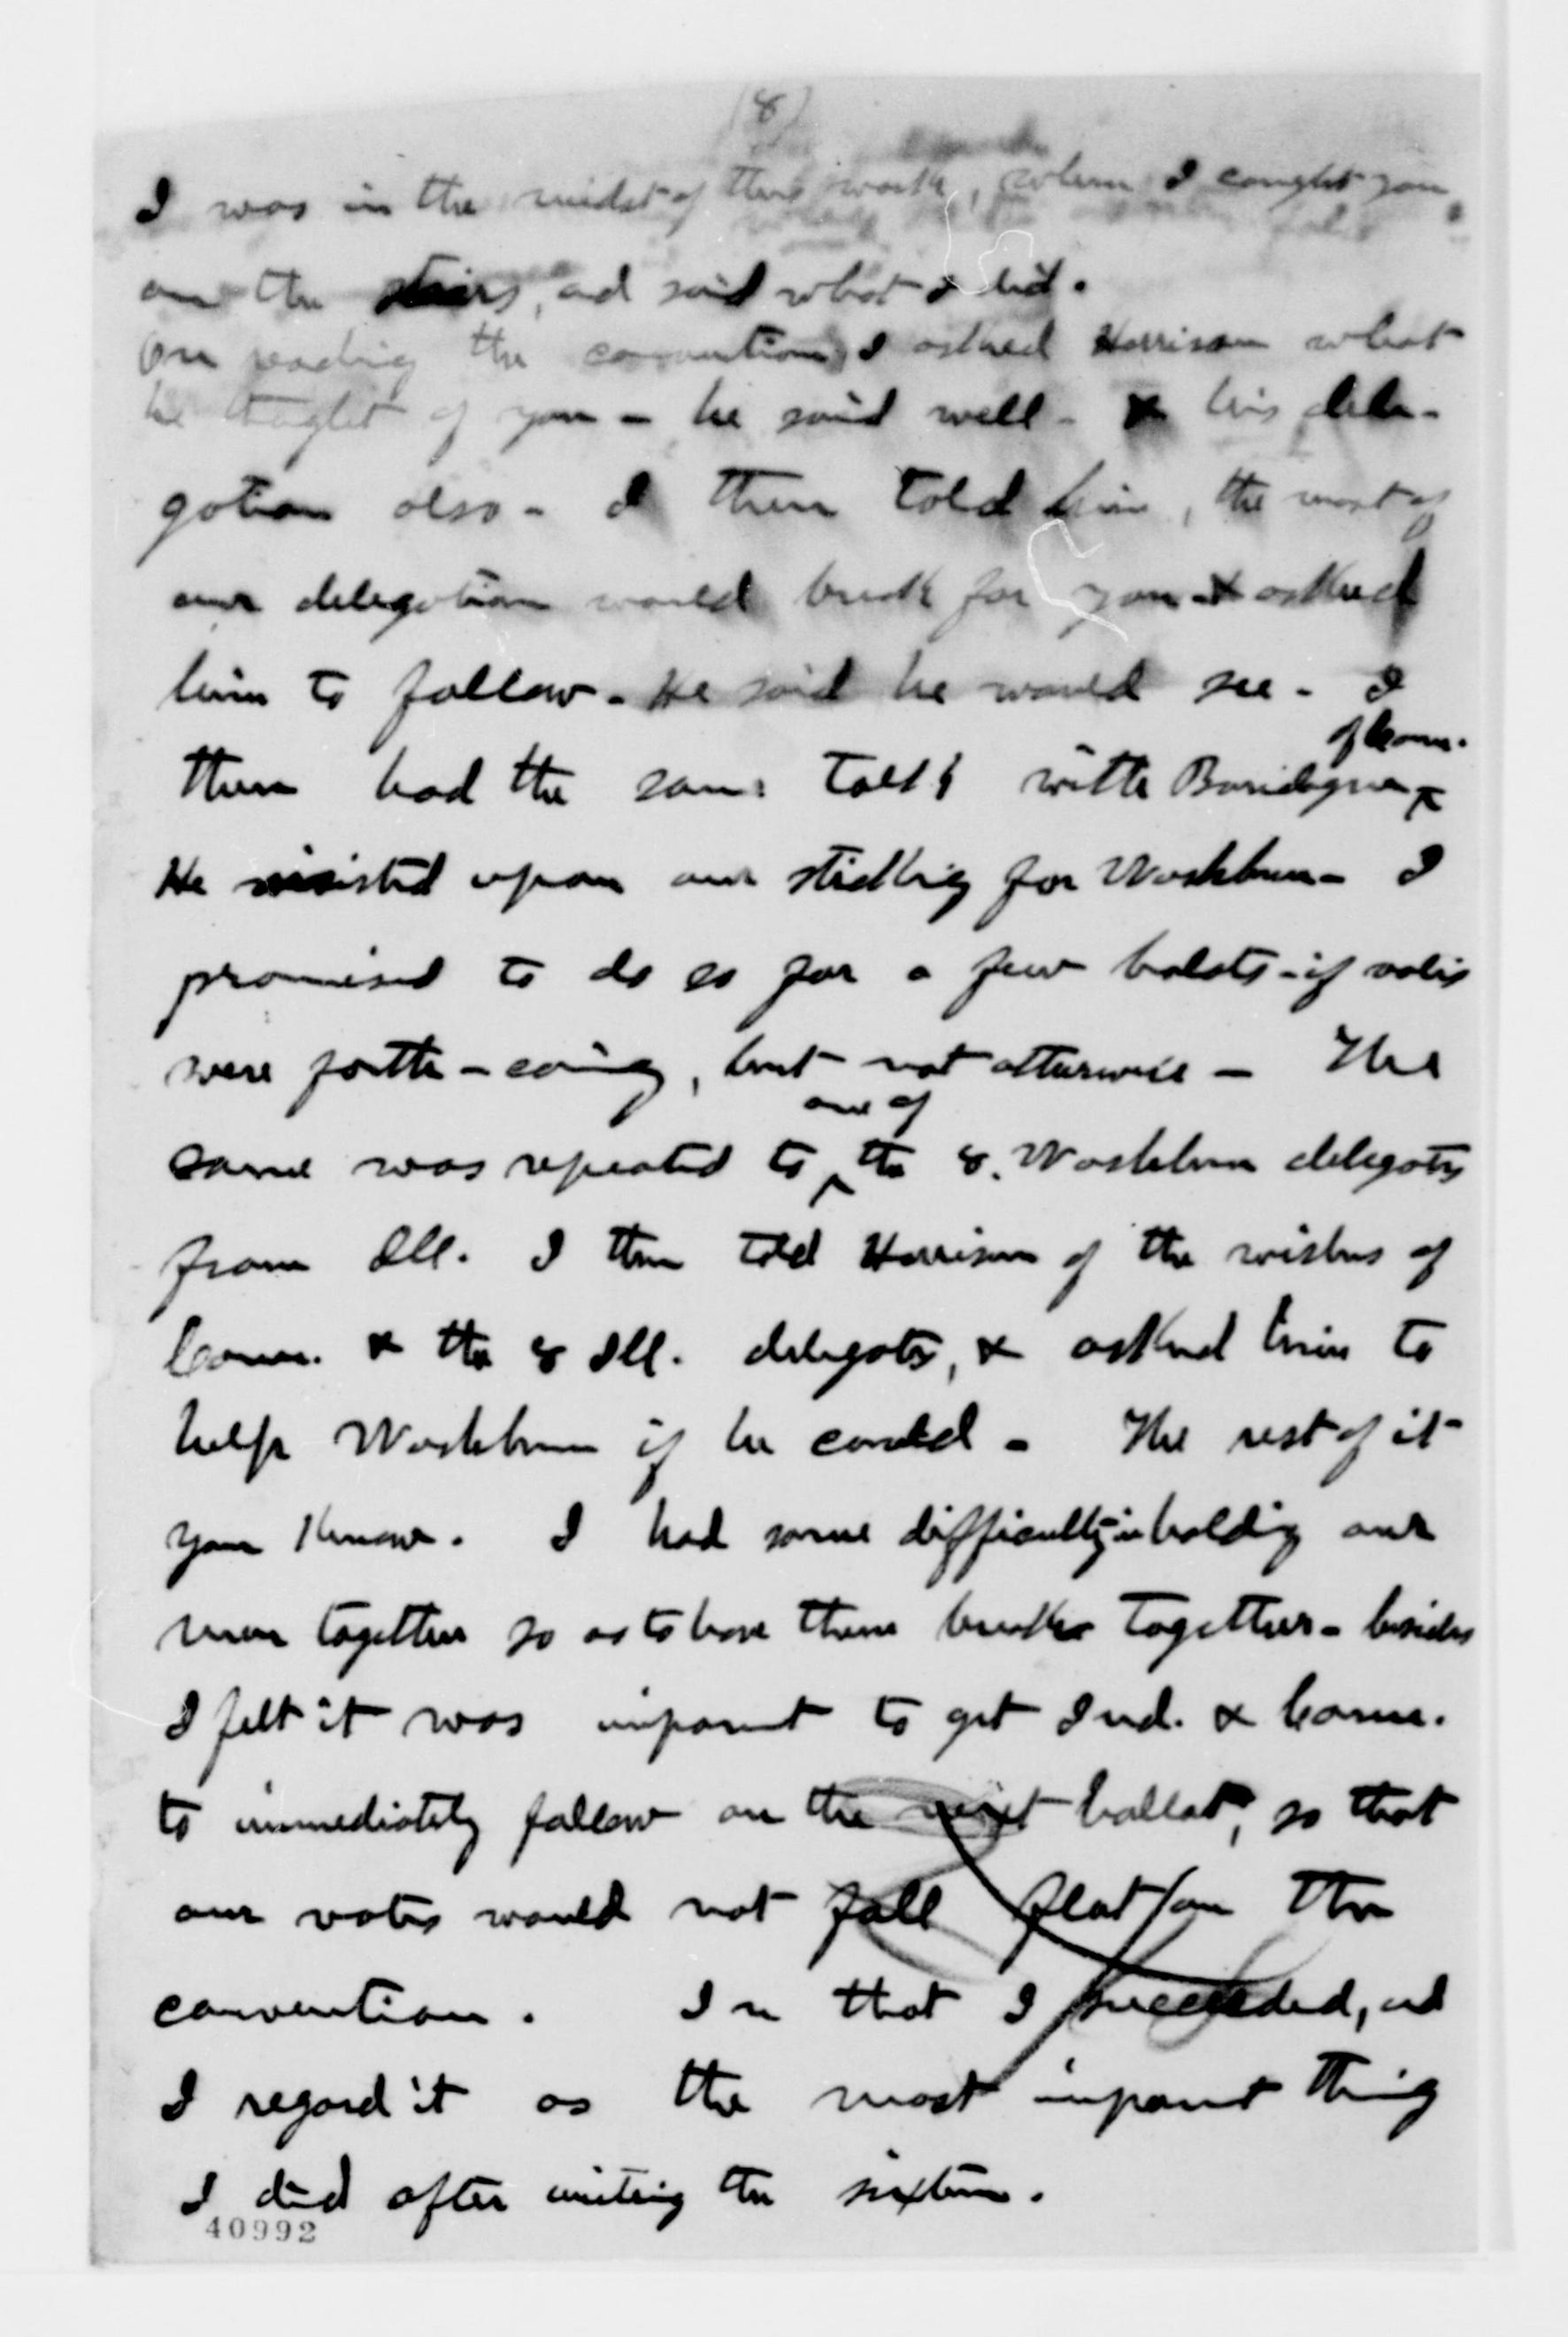 (8)
I was in the midst of this work, when I caught you
on the stairs, ad said what I did.
On reading the convention, I asked Harrison what
he thaught of you - he said well - & his dele-
gation also - I then told him, the most of
our delegation would break for you & asked
him to follow - He said he would see - I
of Conn.
then had the same talk with
He insisted upon our sticking for Washburn - I
promised to do so for a few balots - if votes
were forth-coming, but not otherwise - The
one of
same was repeated to ^ the 8. Washburn delegates
from Ill. I then told Harrison of the wishes of
Conn. & the 8 Ill. delegates, & asked him to
help Washburn if he could - The rest of it
you know. I had some difficulty in holding our
men together so as to have them break together - besides
I felt it was imporant to get Ind. & Conn.
to immediately follow on the next ballot, so that
our votes would not fall flat on the
convention. In that I succeeded, ad
I regard it as the most imporant thing
I did after uniting the sixteen.
40992